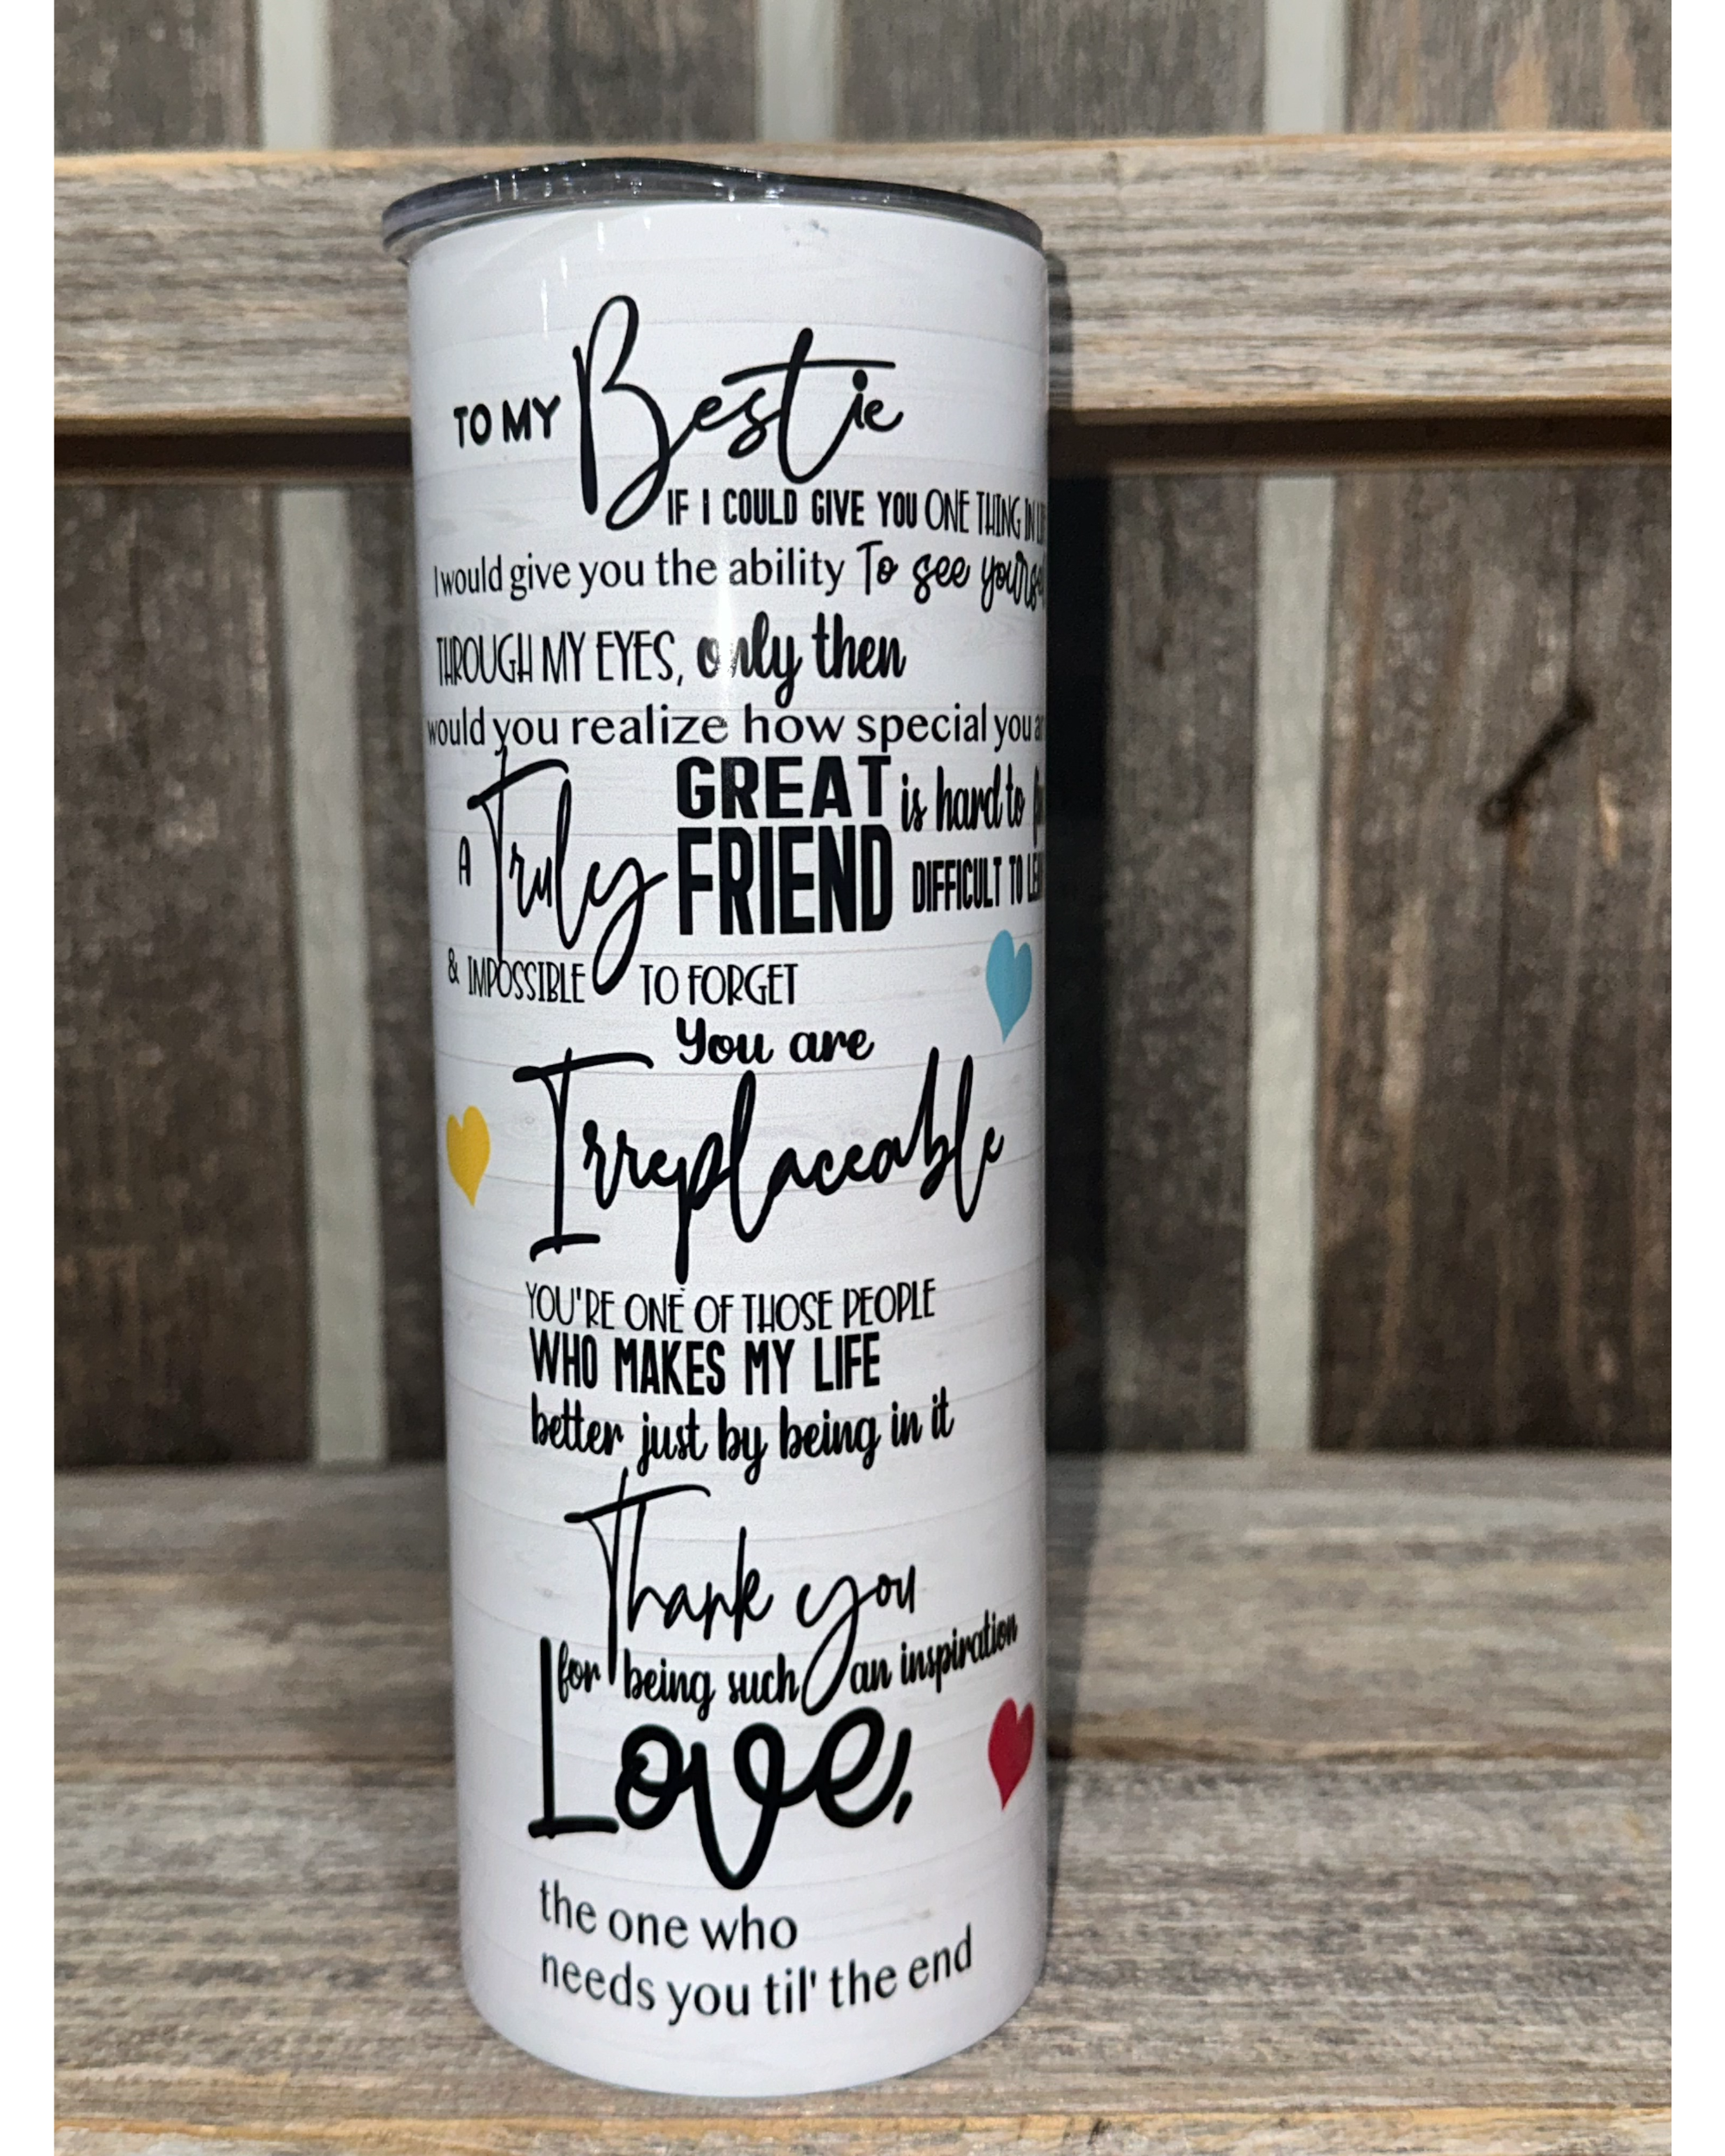 TO MY Bestie
IF I COULD GIVE YOU ONE THING IN
I would give you the ability To see
THROUGH MY EYES, only then
would you realize how special you
A Truly GREAT FRIEND is hard to
DIFFICULT TO
& IMPOSSIBLE TO FORGET
You are
Irreplaceable
YOU'RE ONE OF THOSE PEOPLE
WHO MAKES MY LIFE
better just by being in it
Thank you
for being such an inspiration
Love,
the one who
needs you til' the end